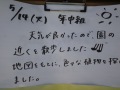 5/14(火) 年中組
天気が良かったので、園の
近くを散歩しました
地図をもとに、色々な植物を探し
ました。